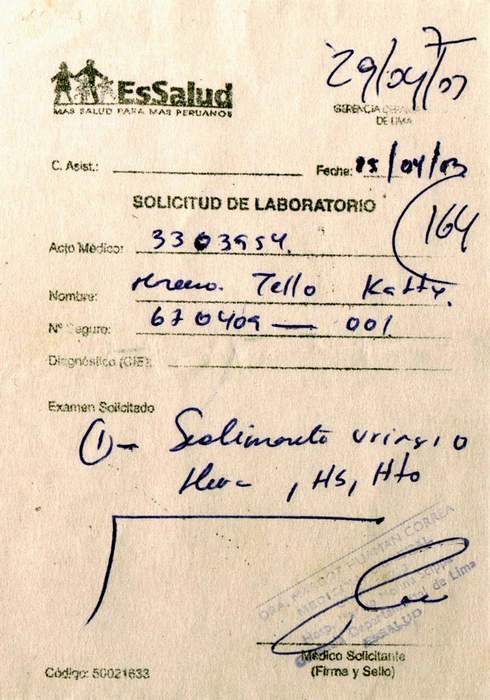 29/04/07
EsSalud
MAS SALUD PARA MAS PERUANOS
GERENCIA DEPARTAMENTAL
DE LIMA
C. Asist.:
Fecha: 18/04/03
SOLICITUD DE LABORATORIO
164
Acto Médico: 3303954.
Nombre: Tello Katty.
Nº Seguro: 670409 — 001
Diagnóstico (CIE):
Examen Solicitado
①- Sedimento urinario
, HS, Hto
DRA. MARGOT HUAMAN CORREA
ESSALUD
Médico Solicitante
(Firma y Sello)
Código: 50021633